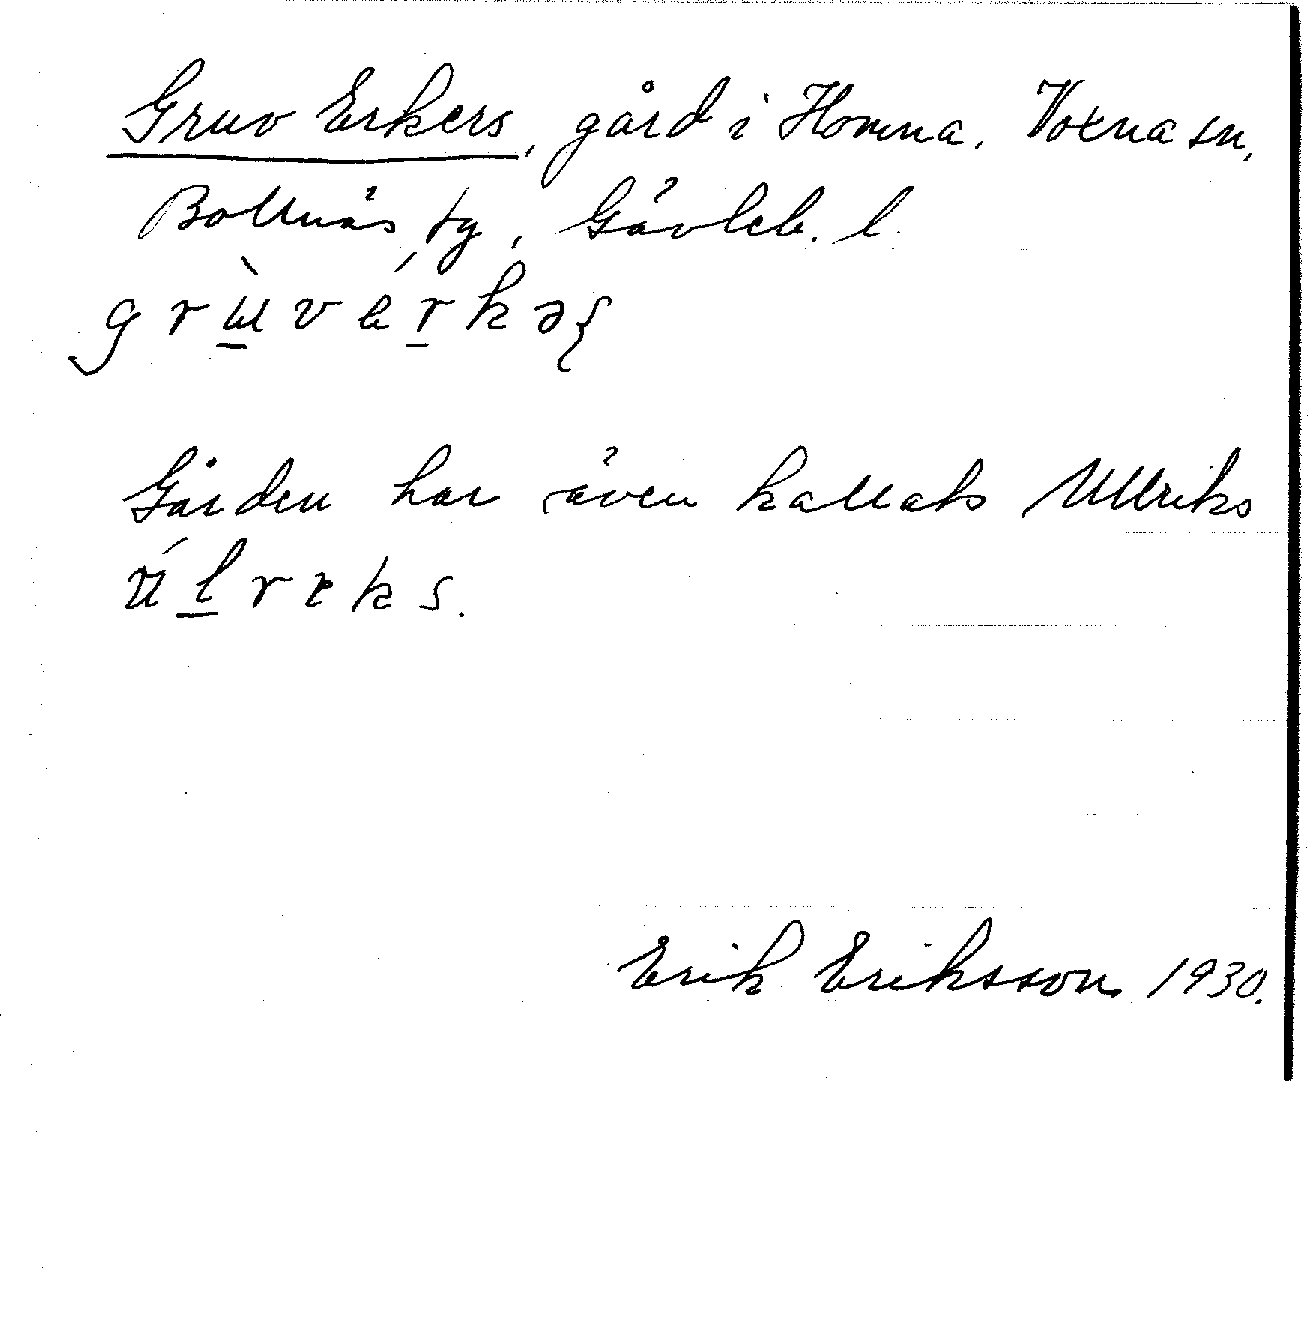 Gruv Erkers, gård i Homna. Voxna sn,
Bollnäs tg, Gävleb. l.
grùvérkəʂ
Gården har även kallats Ullriks
úlrɪks.
Erik Eriksson 1930.